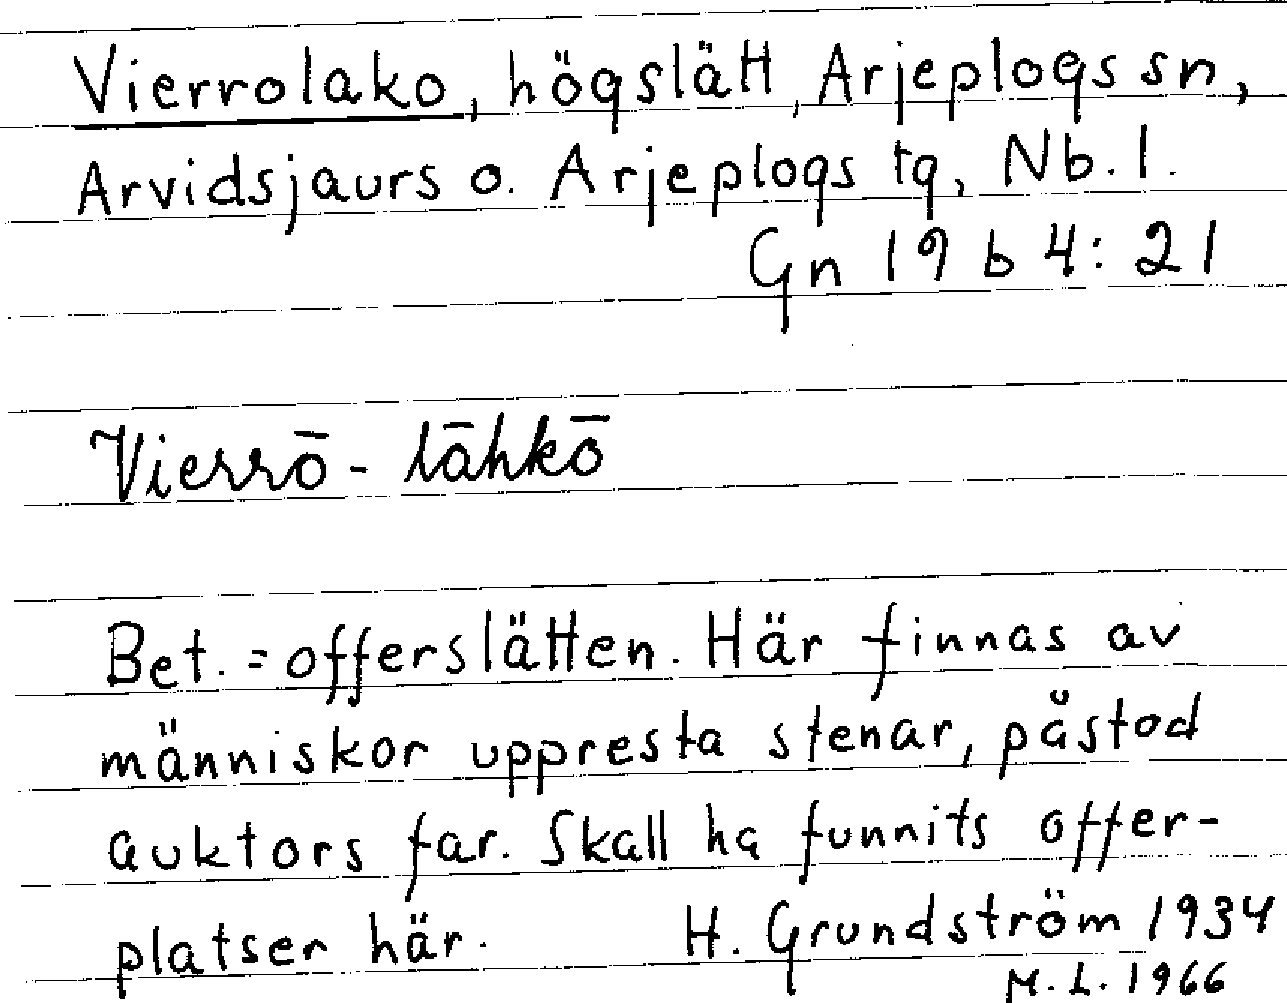 Vierrolako, högslätt, Arjeplogs sn,
Arvidsjaurs o. Arjeplogs tg, Nb. l.
Gn 19 b 4: 21
Vierrō - lāhkō
Bet. = offerslätten. Här finnas av
människor uppresta stenar, påstod
auktors far. Skall ha funnits offer-
platser här. H. Grundström 1934
M. L. 1966